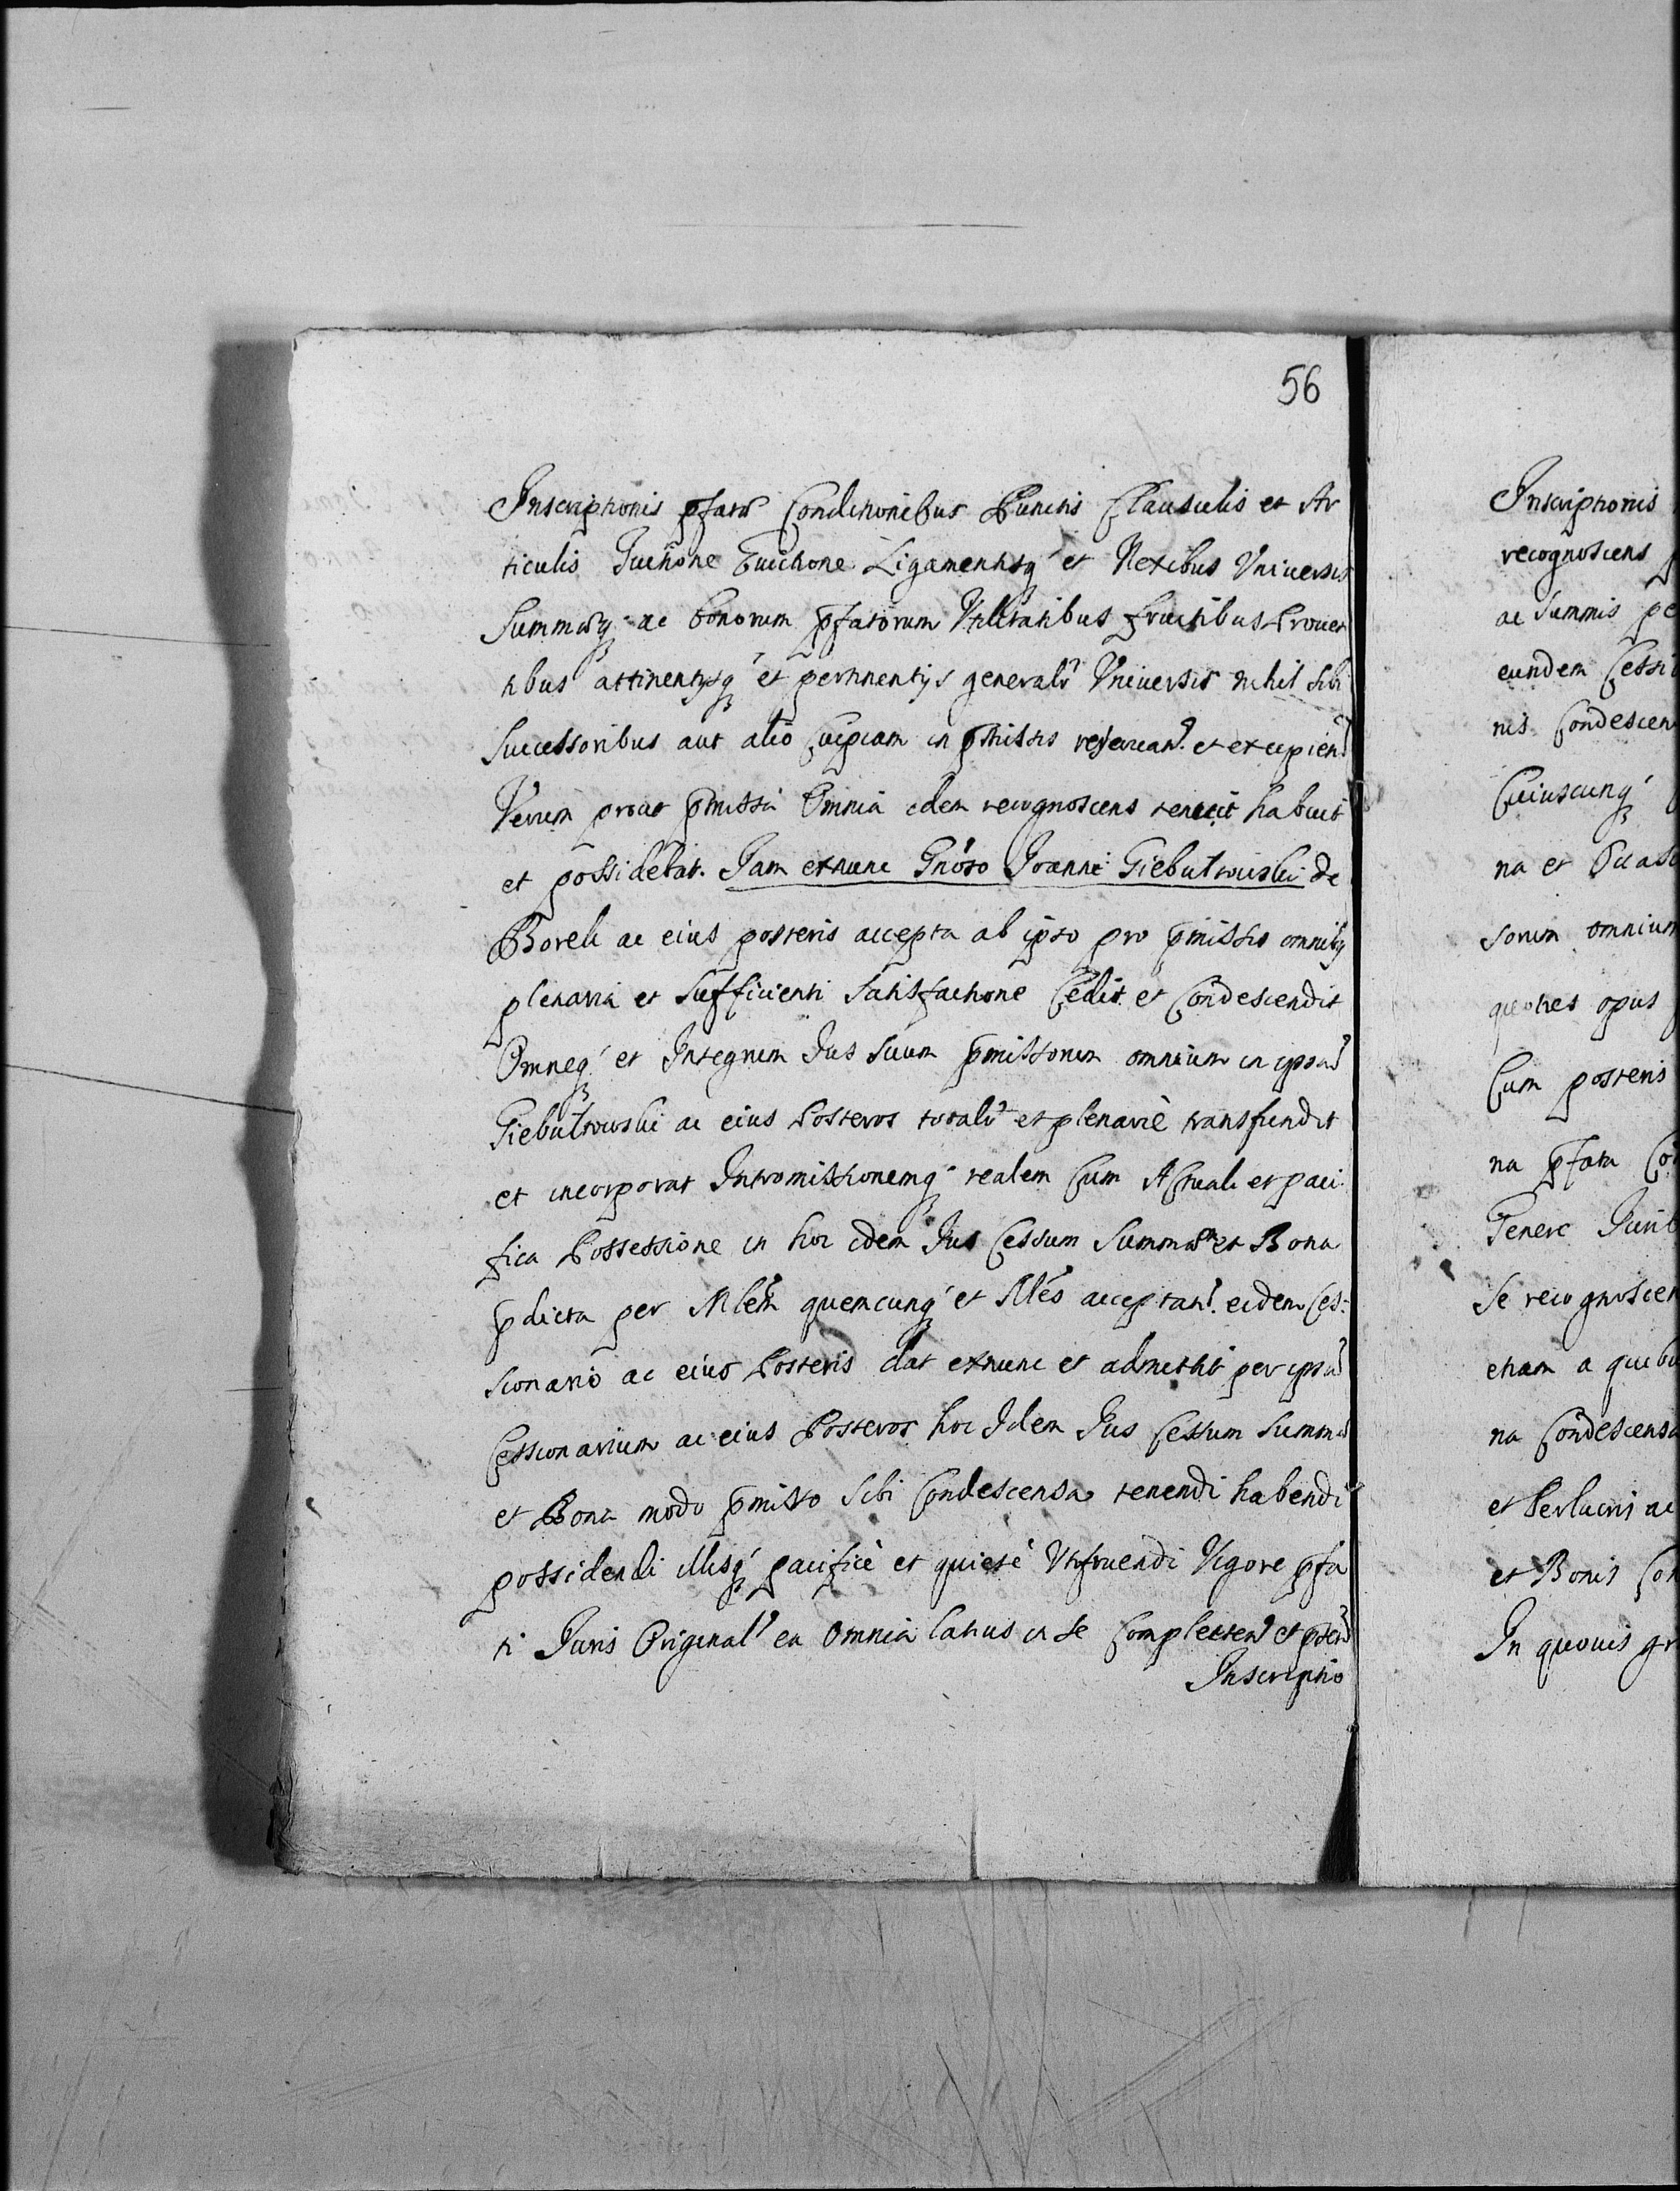 56
Inscriptionis pfatis Conditionibus Punctis Clausulis et Ar
ticulis Iuitione Euictione Ligamentisq et Nexibus Vniuersis
Summarq ac bonorum pfatorum Vtilitatibus fructibus Prouen
tibus attinentysq et pertinentys generalr Vniuersis nihil sibi
Successoribus aut alio Cuipiam in pmissis reseruan. et excipien
Verum prout pmissa Omnia idem recognoscens tenuit habuit
et possidebat. Iam exnunc Gnoso Ioanni Giebultowski de
Borek ac eius posteris accepta ab ipso pro pmissis omnibq
plenaria et Sufficienti Satisfactione Cedit et Condescendit
Omneq et Integrum Ius Suum pmissorum omnium in ipsum
Giebultowski ac eius Posteros totalr et plenariè transfundit
et incorporat Intromissionemq realem Cum Actuali et paci
fica Possessione in hoc idem Ius Cessum Summas et Bona
pdicta per Mlem quemcunq et Nles acceptan. eidem Ces=
sionario ac eius Posteris dat exnunc et admittit per ipsum
Cessionarium ac eius Posteros hoc Idem Ius Cessum Summas
et Bona modo pmisso Sibi Condescensa tenendi habendi
possidendi illisq pacificè et quietè Vtifruendi Vigore pfa
ti Iuris Original ea Omnia latius in se Complecten et pten
Inscriptio
Inscriptionis
recognoscens
ac Summis
eundem
nis Condescen
Cuiuscunq
na et
sorum omnium
quoties opus
Cum posteris
na pfata
Tenere
Se recognoscen
etiam a quibu
na Condescensa
et Perlucris ac
et Bonis
In quouis gr